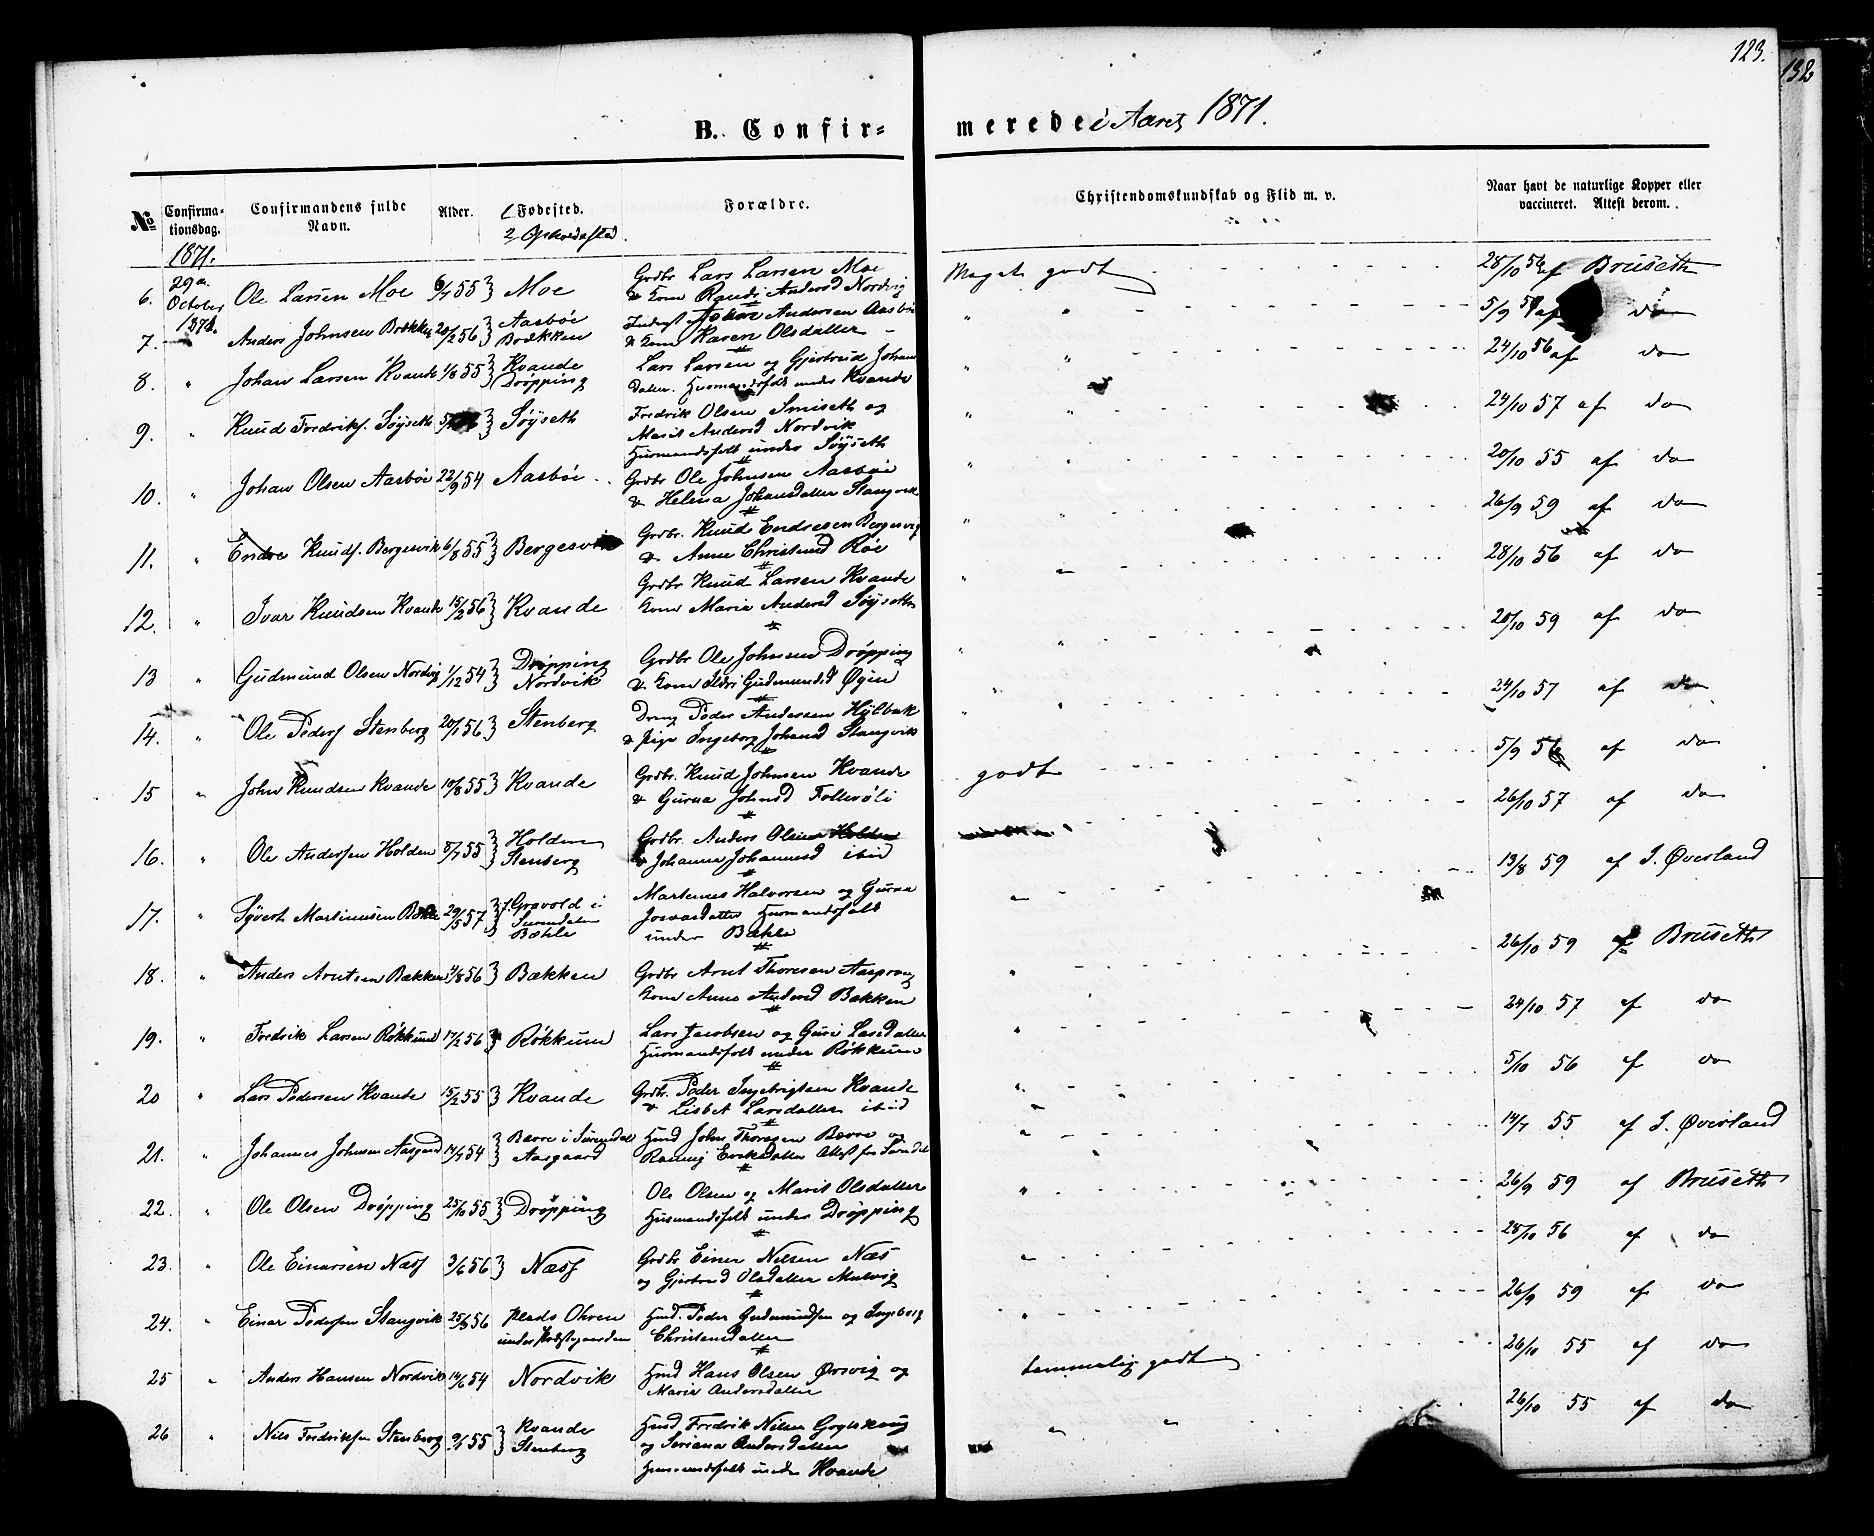 123.
132
B. Confir- merede i Aaret 1871.
No Confirma-tionsdag. Confirmandens fulde Navn. Alder. 1, Fødested. 2, Opholdssted. Forældre. Christendomskundskab og Flid m. v. Naar havt de naturlige Kopper eller vaccineret. Attest derom.
1871.
6. 29de October 1871. Ole Larsen Moe 6/7 55 Moe Grdbr Lars Larsen Moe
& Kone Randi Andersd Nordvig Meget godt 28/10 56 af Bruseth
7. Anders Johnsen Bækken 20/2 56 Aasbøe Bækken Anders Andersen Aasbøe
& Kone Karen Olsdatter " " 5/9 59 af do
8. " Johan Larsen Kvande 1/8 55 Kvande Drøpping Lars Larsen og Gjertrud Johans
Datter. Husmandsfolk under Kvande " " 24/10 56 af do
9. " Knud Fredriks. Søyseth Søyseth Fredrik Olsen Smiseth og
Marit Andersd Nordvik
Husmandsfolk under Søyseth " " 24/10 57 af do
10. " Johan Olsen Aasbøe 22/9 54 Aasbøe Grdbr Ole Johnsen Aasbøe
& Helena Johansdatter Stangvik " " 20/10 55 af do
11. " Endre Knuds. Bergesvik 6/8 55 Bergesvik Grdbr. Knud Endresen Bergesvig
& Anne Christensd Røe " " 26/9 59 af do
12. " Ivar Knudsen Kvande 15/2 56 Kvande Grdbr Knud Larsen Kvande
Kone Marie Andersd Søyseth " " 28/10 56 af do
13 " Gudmund Olsen Nordvig 1/12 54 Drøpping Nordvik Grdbr Ole Johnsen Drøpping
& Kone Sidri Gudmundsd Øyen " " 20/10 59 af do
14. " Ole Peders Stenberg 20/1 56 Stenberg Dreng Peder Andersen Hylbak
& Pige Ingeborg Johansd Stangvik " " 24/10 57 af do
15 " John Knudsen Kvande 10/8 55 Kvande Grdbr. Knud Johnsen Kvande
& Gurua Johnsd Follevøli godt 5/9 56 af do
16. " Ole Andersen Holden 5/7 55 Holden Stenberg Grdbr. Anders Olsen Holden
& Johanna Johannesd ibid 26/10 57 af do
17. " Syvert Martinusen Bækle 29/5 57 1, Grøvold i Surendalen Bækle Martenus Halvorsen og Gurua
Joevarsdatter Husmandsfolk
under Bækle " 13/8 59 af I. Øverland
18. " Anders Arntsen Bækken 4/8 56 Bækken Grdbr Arnt Thoresen Aasprang
Kone Anne Andersd Bækken " 26/10 59 af Bruseth
19. " Fredrik Larsen Røkkum 17/2 56 Røkkum Lars Jacobsen og Guri Larsdatter
Husmandsfolk under Røkkum " 24/10 57 af do
20 " Lars Pedersen Kvande 15/2 55 Kvande Grdbr. Peder Ingebrigtsen Kvande
& Lisbet Larsdatter ibid " 5/10 56 af do
21. " Johannes Johnsen Aasgaard 14/7 54 Bævre i Surendal Aasgaard Hmd John Thoresen Bævre og
Rannig Eriksdatter Attest fra Surendal " 14/7 55 af I. Øverland
22. " Ole Olsen Drøpping 25/10 55 Drøpping Ole Olsen og Marit Olsdatter
Husmandsfolk under Drøpping " 26/9 59 af Bruseth
23. " Ole Einarsen Næss 3/6 56 Næss Grdbr Einer Nilsen Næs
og Gjertrud Olsdatter Mulvig " 28/10 56 af do
24. " Einar Pedersen Stangvik 25/3 56 Plads Ohren under Præstegaarden Hmd. Peder Gudmundsen og Ingeborg
Christensdatter " 26/9 59 af do
25 " Anders Hansen Nordvik 14/6 54 Nordvik Hmd Hans Olsen Ørsvig og
Marie Andersdatter temmelig godt 26/10 55 af do
26 " Nils Fredriksen Stenberg 9/1 55 Kvande Stenberg Hmd. Fredrik Nilsen
og Seriana Andersdatter
Husmandsfolk under Kvande " " 26/10 55 af do